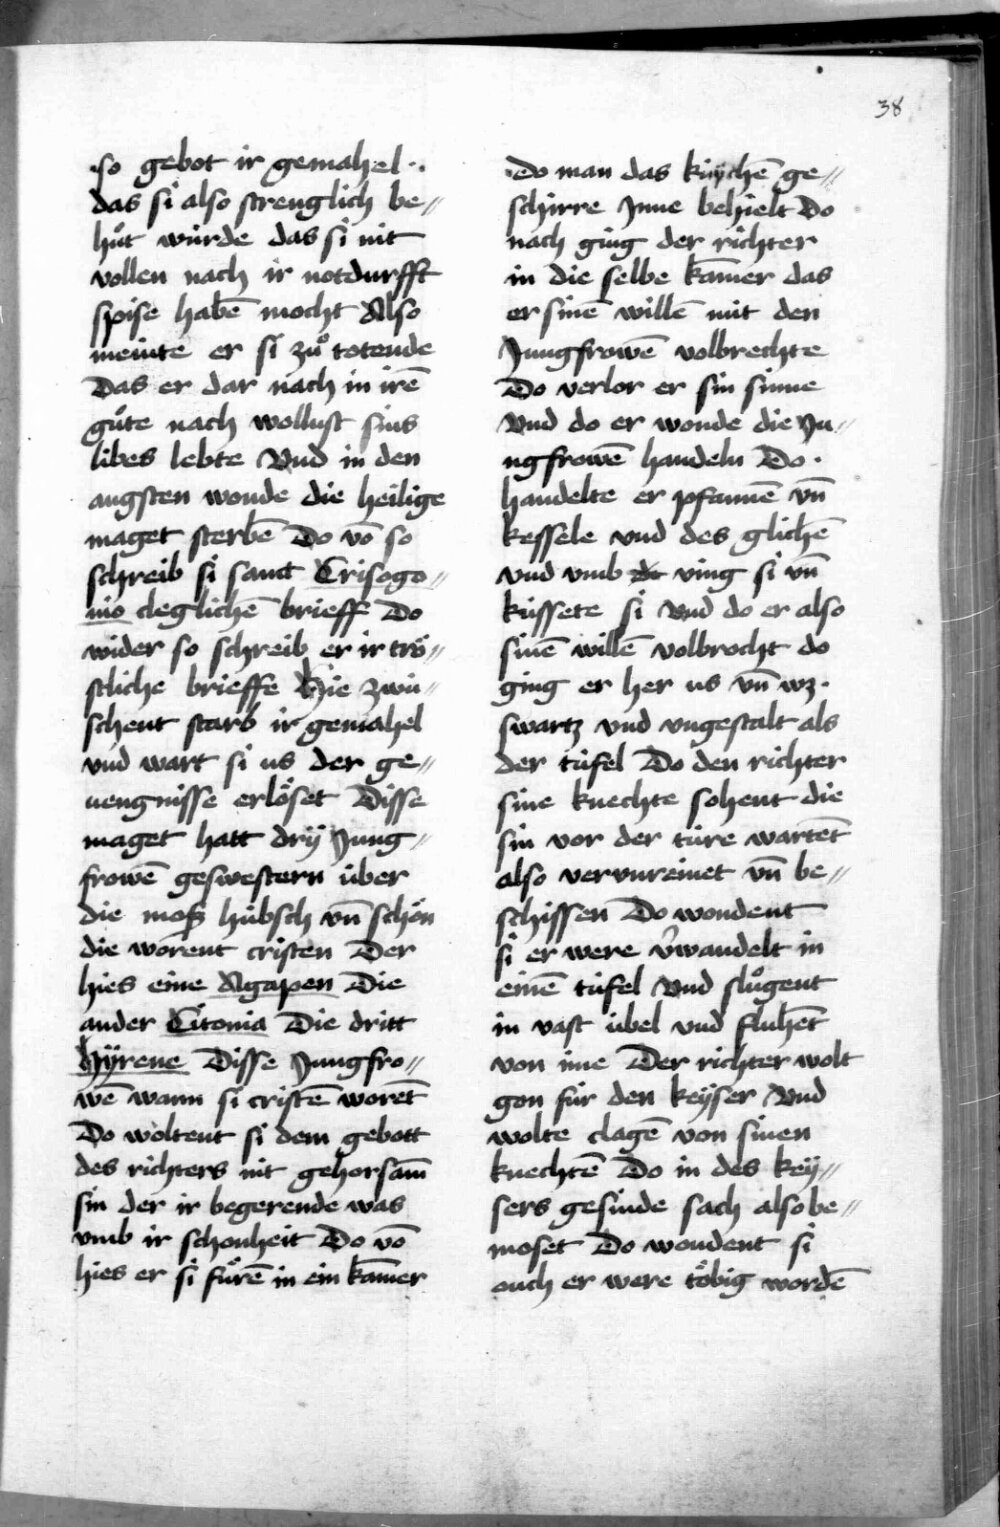 38
·so gebot ir gemahel··
das si also strenglich be〃
huͤt wúrde das si nit
vollen nach ir notdurfft
spise habē mocht Also
meinte er si zuͦ totende
Das er dar nach in irē
guͤte nach wollust sins
libes lebte Vnd in den
angsten wonde die heilige
maget sterbē Do vō so
schreib si sanct Crisogo〃
nio cleglichē brieffe Do
wider so schreib er ir trö〃
stliche brieffe Hie zwú〃
schent starb ir gemahel
vnd wart si us der ge〃
uengnisse erlöset Disse
maget hatt drÿ Jung〃
frowē geswestern über
die moß húbsch vn̄ schön
die worent cristen Der
hies eine Agapen Die
ander Citonia Die dritt
Hÿrene Disse Jungfro〃
wē wann si cristē woret̄
Do woltent si dem gebott
des richters nit gehorsam̄
sin der ir begerende was
vmb ir schonheit Do vō
hies er si fuͤrē in ein kam̄er
do man das kúchē ge〃
schirre Jnne behielt Do
nach ging der richter
in die selbe kam̄er das
er sinē willē mit den
Jungfrowē volbrechte
Do verlor er sin sinne
Vnd do er wonde die Ju〃
ngfrowē handeln Do·
handelte er pfannē vn̄
kessele vnd des glichē
vnd vmb ving si vn̄
kússete si Vnd do er also
sinē willē volbrocht do
ging er her us vn̄ wz·
swartz vnd vngestalt als
der túfel Do den richter
sine knechte sohent die
sin vor der túre wartet̄
also vervnreinet vn̄ be〃
schissen Do wondent
si er were v̉wandelt in
einē túfel Vnd sluͦgent
in vast úbel vnd fluhet̄
von ime Der richter wolt
gon fúr den keÿser Vnd
wolte clagē von sinen
knechtē Do in des keÿ〃
sers gesinde sach also be〃
moset Do wondent si
ouch er were töbig wordē